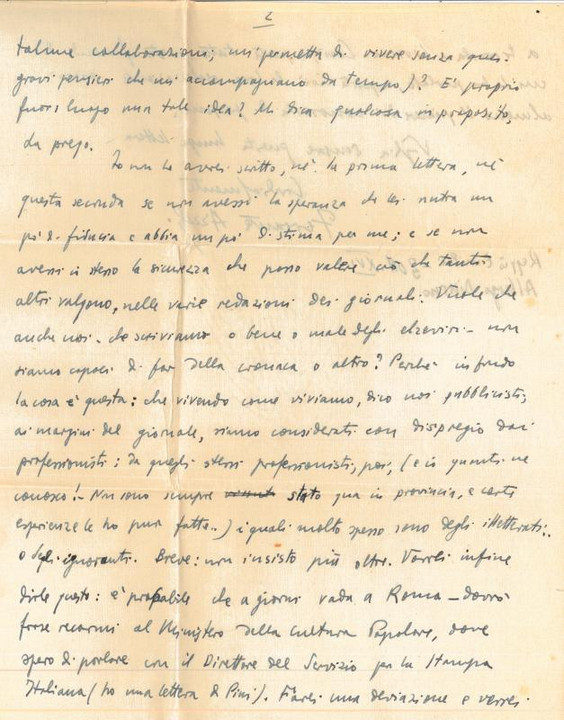 2
talune collaborazioni; mi permetta di vivere senza quei
gravi pensieri che mi accompagnano da tempo)? E' proprio
fuori luogo una tale idea? Mi dica qualcosa in proposito,
da prego.
Io non le avrei scritto, nè la prima lettera, nè
questa seconda se non avessi la speranza che Lei nutra un
po' di fiducia e abbia un po' di stima per me; e se non
avessi io stesso la sicurezza che posso valere ciò che tanti
altri valgono, nelle varie redazioni dei giornali. Vuole che
anche noi - che scriviamo o bene o male degli elzeviri - non
siamo capaci di far della cronaca o altro? Perchè in fondo
la cosa è questa: che vivendo come viviamo, dico noi pubblicisti,
ai margini del giornale, siamo considerati con dispregio dai
professionisti; da quegli stessi professionisti, poi, (e io quanti ne
conosco! - Non sono sempre stato qua in provincia, e certe
esperienze le ho pur fatte..) i quali molto spesso sono degli illetterati..
o degli ignoranti. Breve: non insisto più oltre. Vorrei infine
dirle questo: è probabile che a giorni vada a Roma - dovrò
forse recarmi al Ministero della Cultura Popolare, dove
spero di parlare con il Direttore del Servizio per la Stampa
Italiana (ho una lettera di Pini). Farei una deviazione e verrei